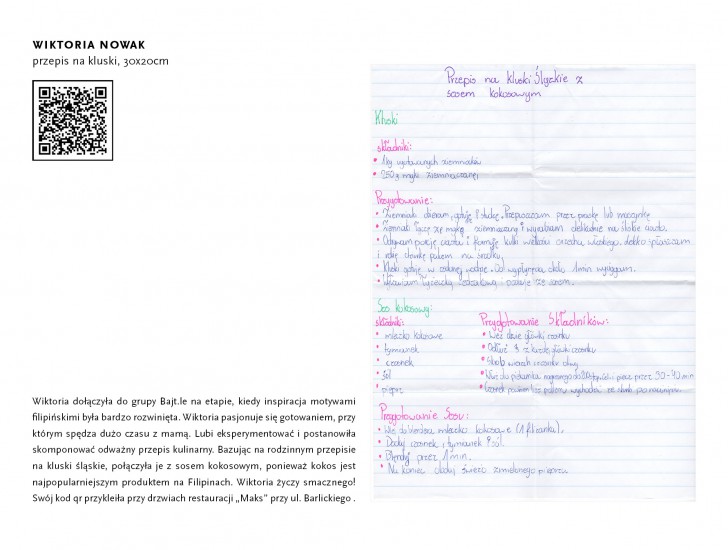 WIKTORIA NOWAK
przepis na kluski, 30x20cm
Przepis na kluski Śląskie z
sosem kokosowym
Kluski
składniki:
• 1kg ugotowanych ziemniaków
• 250 g mąki ziemniaczanej
Przygotowanie:
• Ziemniaki obieram, gotuję i studzę. Przepuszczam przez praskę lub maszynkę
• Ziemniaki łączę się mąką ziemniaczaną i wyrabiam delikatnie na ciasto.
• Odrywam porcję ciasta i formuję kulki wielkości orzecha włoskiego, lekko spłaszczam
i robię dziurkę palcem na środku.
• Kluski gotuję w osolonej wodzie. Od wypłynięcia około 1 min wyciągam.
• łyżeczką i podaję ze sosem.
Sos kokosowy:
składniki:
• mleczko kokosowe
• tymianek
• czosnek
• sól
• pieprz
Przygotowanie Składników:
• Weź dwie główki czosnku
• Odkrój z każdej główki czosnku
• Skrop wierzch czosnku oliwą
• Włóż do piekarnika nagrzanego do i piecz przez 30-40 min
• Czosnek powinien bez problemu wychodzić ze
Przygotowanie Sosu:
• Wlej do blendera mleczko kokosowe (1 filiżanka).
• Dodaj czosnek, tymianek i sól.
• Blenduj przez 1 min.
• Na koniec dodaj świeżo zmielonego pieprzu
Wiktoria dołączyła do grupy Bajt.le na etapie, kiedy inspiracja motywami
filipińskimi była bardzo rozwinięta. Wiktoria pasjonuje się gotowaniem, przy
którym spędza dużo czasu z mamą. Lubi eksperymentować i postanowiła
skomponować odważny przepis kulinarny. Bazując na rodzinnym przepisie
na kluski śląskie, połączyła je z sosem kokosowym, ponieważ kokos jest
najpopularniejszym produktem na Filipinach. Wiktoria życzy smacznego!
Swój kod qr przykleiła przy drzwiach restauracji „Maks” przy ul. Barlickiego .